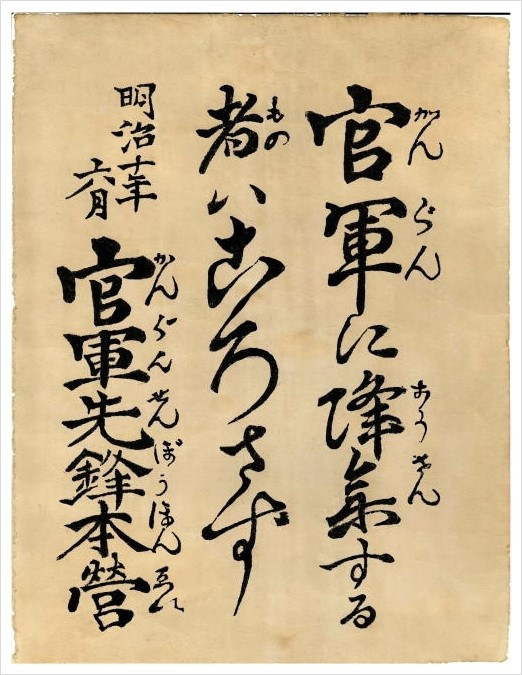 官軍に降參する
かんぐん こうさん
者ハころさず
もの
明治十年
六月
官軍先鋒本營
かんぐんせんぽうほんゑい